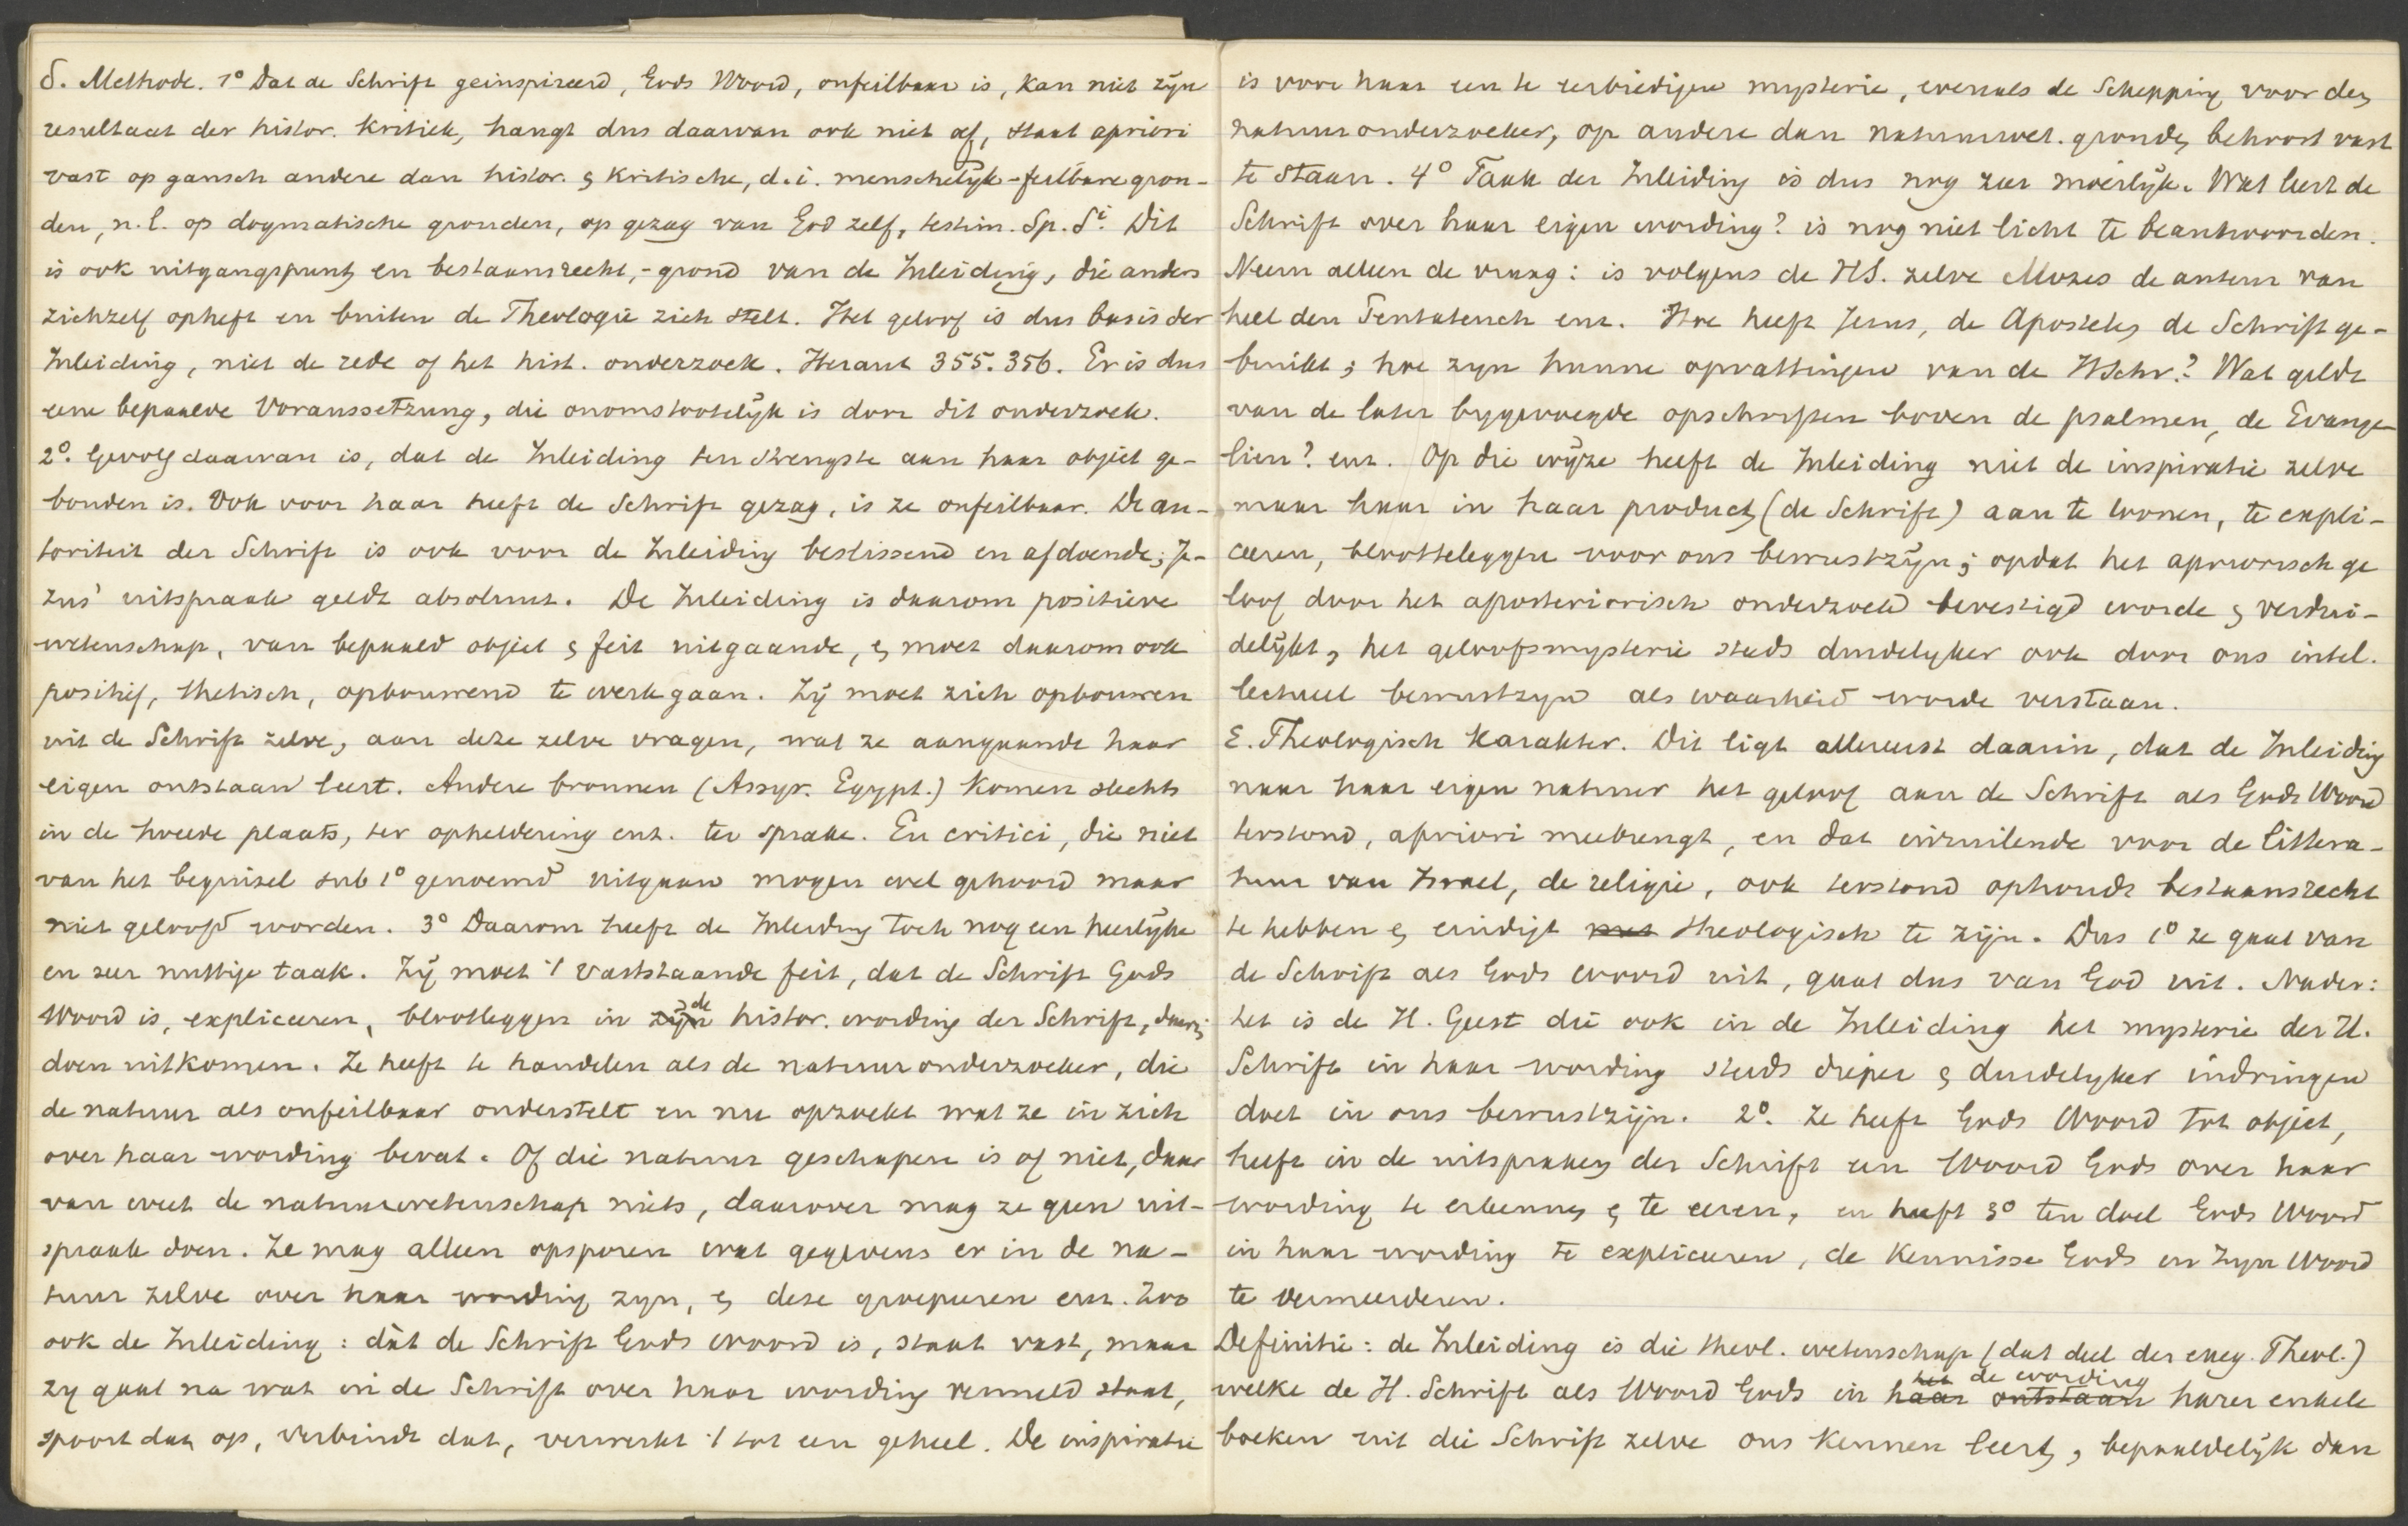 δ. Methode. 1° Dat de Schrift geinspireerd, Gods Woord, onfeilbaar is, kan niet zijn
resultaat der histor. kritiek, hangt dus daarvan ook niet af, staat apriori
vast op gansch andere dan histor. & kritische, d.i. menschelijk-feilbare gron-
den, n.l. op dogmatische gronden, op gezag van God zelf, testim. Sp. Si. Dit
is ook uitgangspunt en bestaansrecht,-grond van de Inleiding, die anders
zichzelf opheft en buiten de Theologie zich stelt. Het geloof is dus basis der
Inleiding, niet de rede of het hist. onderzoek. Heraut 355. 356. Er is dus
eene bepaalde Voraussetzung, die onomstootelijk is door dit onderzoek.
2°. Gevolg daarvan is, dat de Inleiding ten strengste aan haar object ge-
bonden is. Ook voor haar heeft de Schrift gezag, is ze onfeilbaar. De au-
toriteit der Schrift is ook voor de Inleiding beslissend en afdoende; Je-
zus' uitspraak geldt absoluut. De Inleiding is daarom positieve
wetenschap, van bepaald object & feit uitgaande, & moet daarom ook
positief, thetisch, opbouwend te werk gaan. Zij moet zich opbouwen
uit de Schrift zelve, aan deze zelve vragen, wat ze aangaande haar
eigen ontstaan leert. Andere bronnen (Assyr. Egypt.) komen slechts
in de tweede plaats, ter opheldering enz. ter sprake. En critici, die niet
van het beginsel sub 1° genoemd uitgaan mogen wel gehoord maar
niet geloofd worden. 3° Daarom heeft de Inleiding toch nog een heerlijke
en zeer nuttige taak. Zij moet 't vaststaande feit, dat de Schrift Gods
Woord is, expliceeren, blootleggen in zijn de histor. wording der Schrift, daarin
doen uitkomen. Ze heeft te handelen als de natuuronderzoeker, die
de natuur als onfeilbaar onderstelt en nu opzoekt wat ze in zich
over haar wording bevat. Of die natuur geschapen is of niet, daar
van weet de natuurwetenschap niets, daarover mag ze geen uit-
spraak doen. Ze mag alleen opsporen wat gegevens er in de na-
tuur zelve over haar wording zijn, & deze groepeeren enz. Zoo
ook de Inleiding: dàt de Schrift Gods woord is, staat vast, maar
zij gaat na wat in de Schrift over haar wording vermeld staat,
spoort dat op, verbindt dat, verwerkt 't tot een geheel. De inspiratie
is voor haar een te eerbiedigen mysterie, evenals de Schepping voor den
natuuronderzoeker, op andere dan natuurwet. gronden behoort vast
te staan. 4° Taak der Inleiding is dus nog zeer moeilijk. Wat leert de
Schrift over haar eigen wording? is nog niet licht te beantwoorden.
Neem alleen de vraag: is volgens de HS. zelve Mozes de auteur van
heel den Pentateuch enz. Hoe heeft Jezus, de Apostelen de Schrift ge-
bruikt; hoe zijn hunne opvattingen van de HSchr.? Wat geldt
van de later bijgevoegde opschriften boven de psalmen, de Evange-
liën? enz. Op die wijze heeft de Inleiding niet de inspiratie zelve
maar haar in haar product (de Schrift) aan te toonen, te expli-
ceeren, blootteleggen voor ons bewustzijn; opdat het apriorisch ge
loof door het aposteriorisch onderzoek bevestigd worde & verdui-
delijkt, het geloofsmysterie steeds duidelijker ook door ons intel.
lectueel bewustzijn als waarheid worde verstaan.
ε. Theologisch karakter. Dit ligt allereerst daarin, dat de Inleiding
naar haar eigen natuur het geloof aan de Schrift als Gods Woord
terstond, apriori meebrengt, en dat inruilende voor de littera-
tuur van Israel, de religie, ook terstond ophoudt bestaansrecht
te hebben & eindigt met theologisch te zijn. Dus 1° ze gaat van
de Schrift als Gods woord uit, gaat dus van God uit. Nader:
het is de H. Geest die ook in de Inleiding het mysterie der H.
Schrift in haar wording steeds dieper & duidelijker indringen
doet in ons bewustzijn. 2°. Ze heeft Gods Woord tot object,
heeft in de uitspraken der Schrift een Woord Gods over haar
wording te erkennen & te eeren, en heeft 3° ten doel Gods Woord
in haar wording te expliceeren, de kennisse Gods en Zijn Woord
te vermeerderen.
Definitie: de Inleiding is die theol. wetenschap (dat deel der exeg. Theol.)
welke de H. Schrift als Woord Gods in haar ontstaan het de wording harer enkele
boeken uit die Schrift zelve ons kennen leert, bepaaldelijk dan